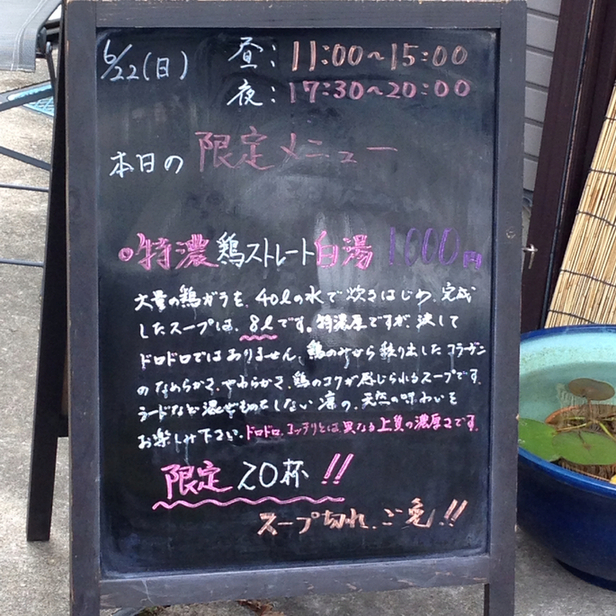 6/22(日) 昼:11:00~15:00
夜:17:30~20:00
本日の 限定メニュー
特濃 鶏ストレート白湯 1000円
大量の鶏ガラを、40ℓの水で炊きはじめ、完成
したスープは、8ℓです。特濃厚ですが、決して
ドロドロではありません。鶏のみから絞り出したコラーゲン
のなめらかさ、やわらかさ、鶏のコクが感じられるスープです。
ラードなど混ぜものをしない凛の、天然の味わいを
お楽しみ下さい。ドロドロ、コッテリとは異なる上質の濃厚さです。
限定 20杯!!
スープ切れ、ご免!!